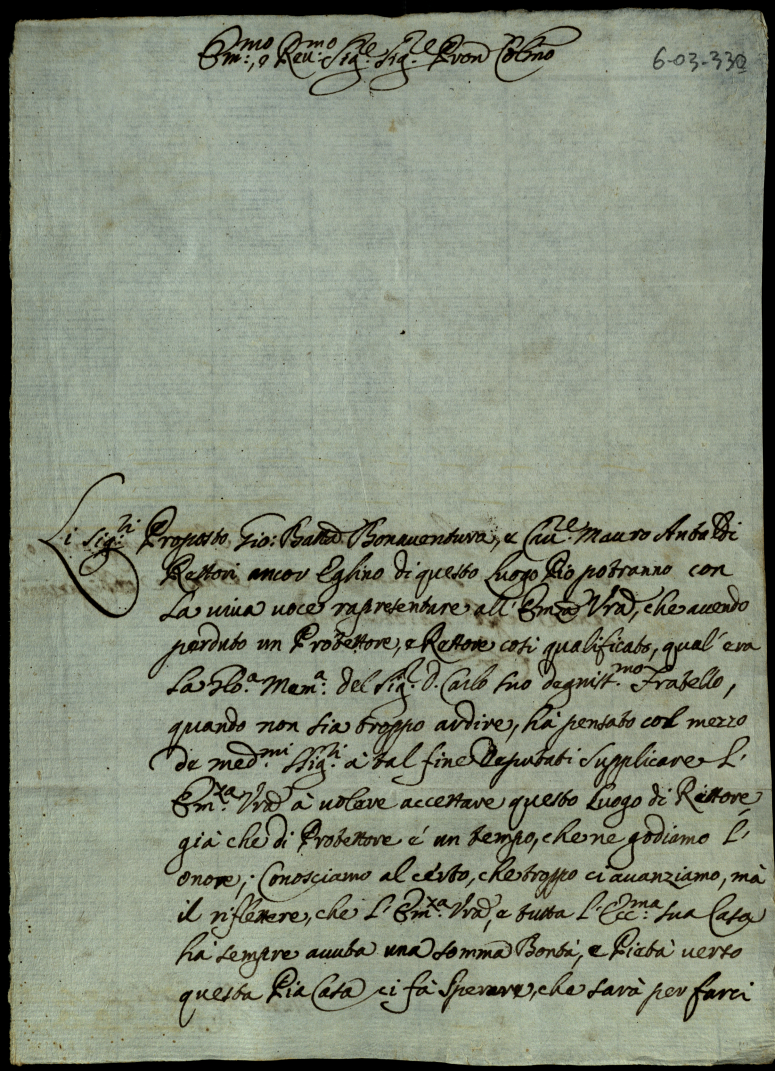 Em:mo, e Reu:mo Sig:e Sig:e Pron Colmo
6-03-330
Li Sig:ri Proposto Gio: Batta Bonaventura, e Cau:e Mauro Antaldi
Rettori ancor Eglino di questo Luogo Pio potranno con
la viva voce rapresentare all' Emza Vra, che avendo
perduto un Protettore, e Rettore così qualificato, qual' era
la Glo:a Mem:a del Sig: D. Carlo suo degnis:mo Fratello,
quando non sia troppo ardire, hà pensato col mezzo
de med:mi SSig:ri à tal fine Deputati supplicare L'
Em:za Vra à volere accettare questo Luogo di Rettore,
già che di Protettore é un tempo, che ne godiamo L'
onore; Conosciamo al certo, che troppo ci avanziamo, mà
il riflettere, che L' Em:za Vra, e tutta L' Ecc:ma sua Casa
hà sempre avuta una somma Bontà, e Pietà verso
questa Pia Casa ci fà Sperare, che sarà per farci